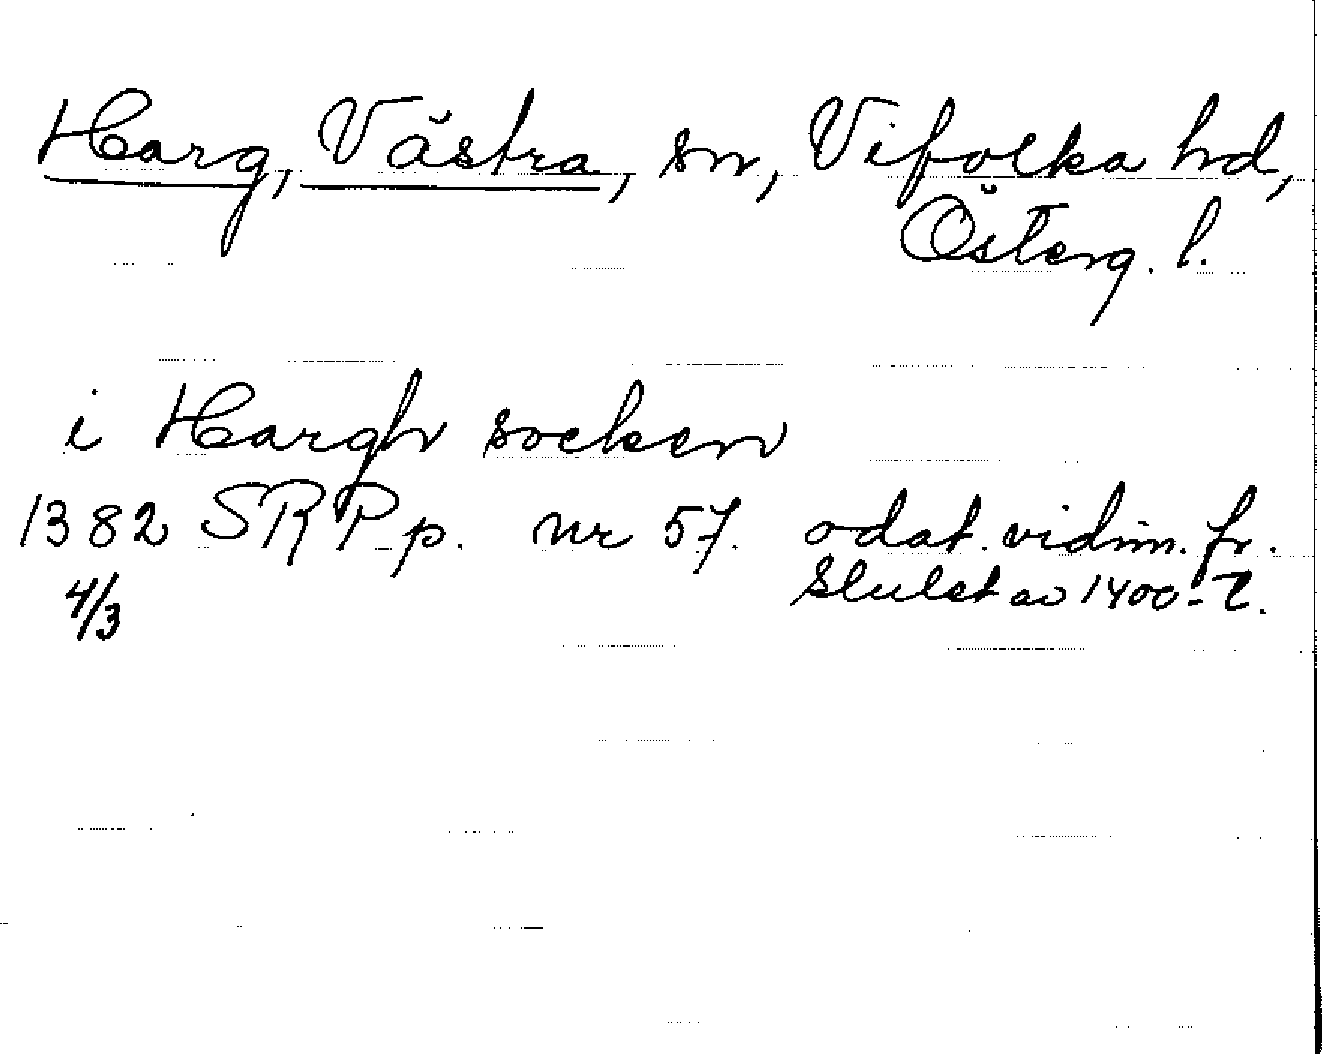 Harg, Västra, sn, Vifolka hd,
Österg. l.
i Hargh socken
1382 SRPp. nr 57. odat. vidim. fr.
4/3 slutet av 1400-t.